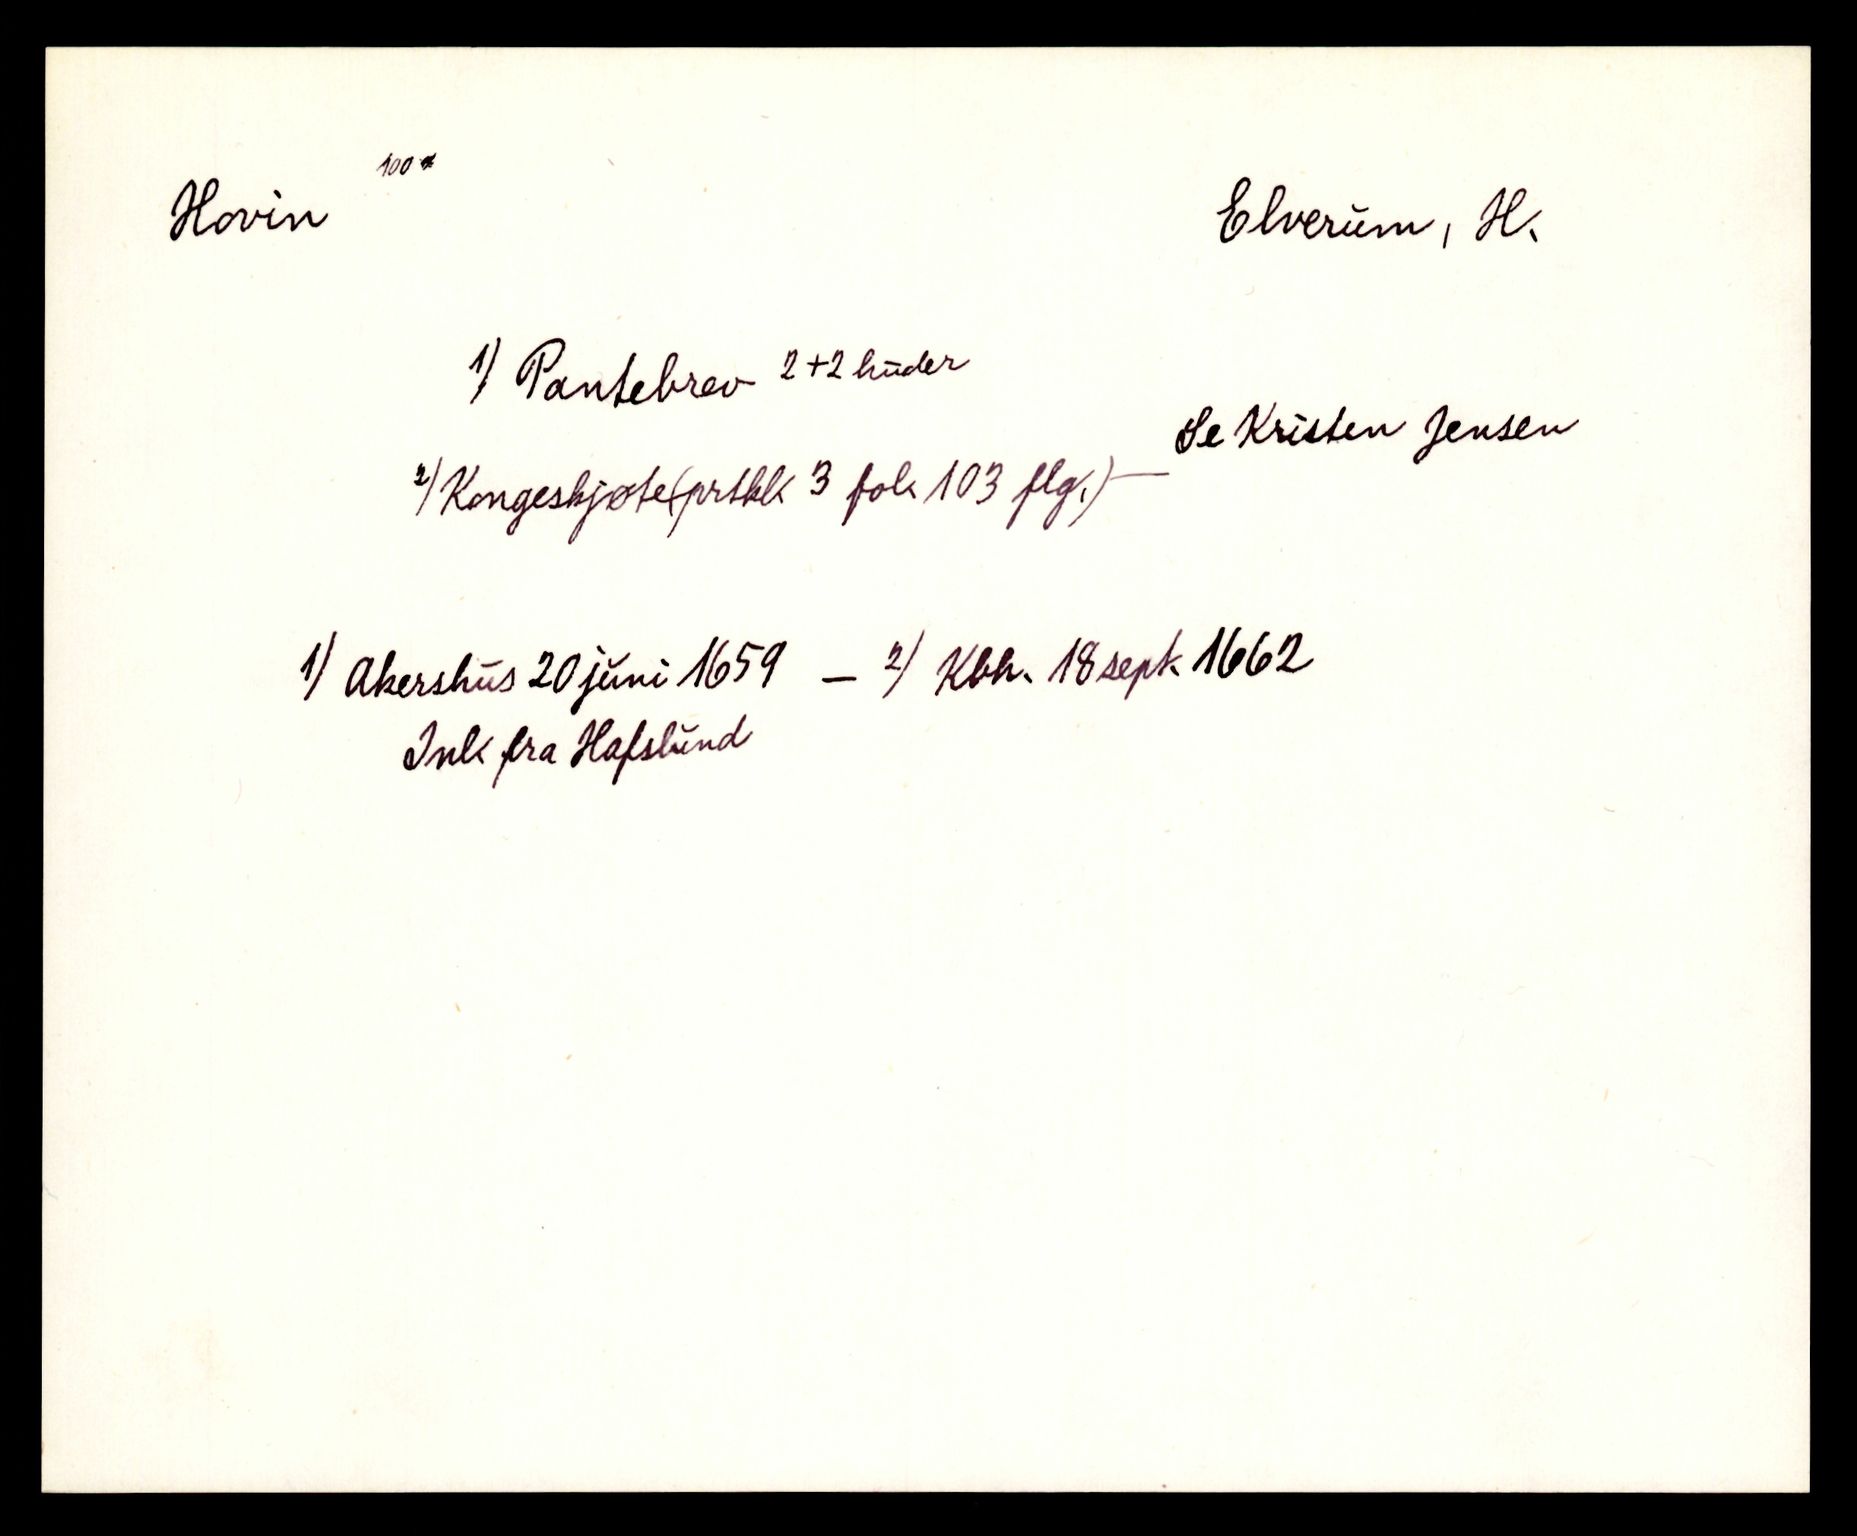 Hovin 100
Elverum, H.
1) Pantebrev 2+2 huder
Se Kristen Jensen
2) Kongeskjøte (prtkk 3 fol. 103 flg.) —
1) Akershus 20 juni 1659 — 2) Kbh. 18 sept. 1662
Ink fra Hafslund